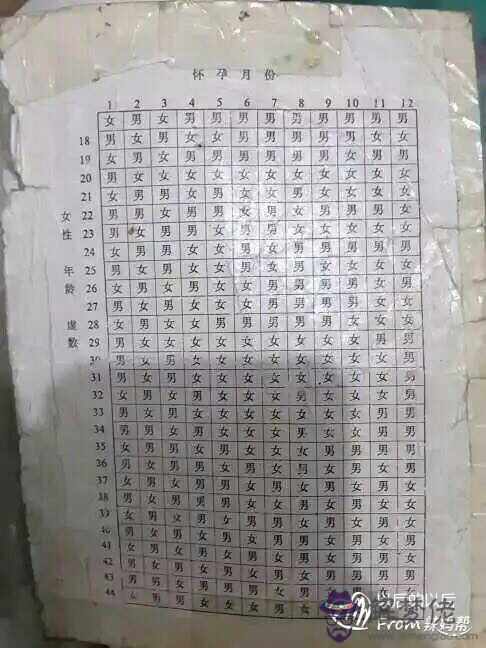 怀孕月份
1 2 3 4 5 6 7 8 9 10 11 12
女 男 女 男 男 男 男 男 男 男 男 男
18 男 女 男 女 女 男 男 男 男 男 女 女
19 女 男 女 男 男 男 男 男 男 女 男 男
20 男 女 女 女 女 女 女 女 女 女 女 女
21 女 男 男 女 男 女 女 男 女 女 女 女
22 男 男 女 男 男 女 男 女 男 男 男 女
23 男 女 男 男 女 男 男 女 女 女 女 女
24 女 男 男 女 女 男 女 男 男 男 男 男
25 男 女 男 女 女 男 女 男 女 女 女 女
26 女 男 女 男 女 女 男 男 男 男 女 女
27 男 女 男 女 女 女 男 男 男 男 女 女
28 女 男 女 女 男 男 男 男 男 女 女 女
29 男 女 女 女 女 女 女 女 女 女 男 男
30 男 女 男 女 女 女 女 女 女 女 女 男
31 男 女 男 女 女 女 女 女 女 女 女 男
32 女 男 女 男 女 女 女 男 女 女 女 男
33 男 女 男 女 女 女 女 女 女 女 男 男
34 男 男 女 男 女 女 女 男 女 女 男 男
35 女 男 男 女 男 女 女 女 男 男 男 男
36 男 女 男 男 女 男 女 男 女 男 女 男
37 女 男 女 男 男 女 男 女 男 女 男 女
38 男 女 男 男 男 女 女 男 女 男 女 女
39 女 男 女 男 女 男 男 女 男 女 男 女
40 男 女 男 女 男 女 男 男 女 男 女 男
41 女 男 女 男 男 女 男 女 男 女 男 女
42 男 女 男 女 男 女 男 男 女 男 女 男
43 男 男 女 男 男 男 女 男 女 男
44 女 男 男 女 女 女 男 女
女性年龄虚数
后的以后
From 辣妈帮
解梦佬
www.jiemenglao.com